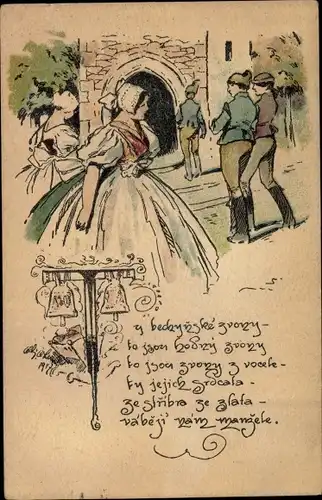 y bechyňské zvony -
to jsou hodný zvony
to jsou zvony z vocele -
ty jejich srdcata -
ze stříbra ze zlata -
vábějí nám manžele.